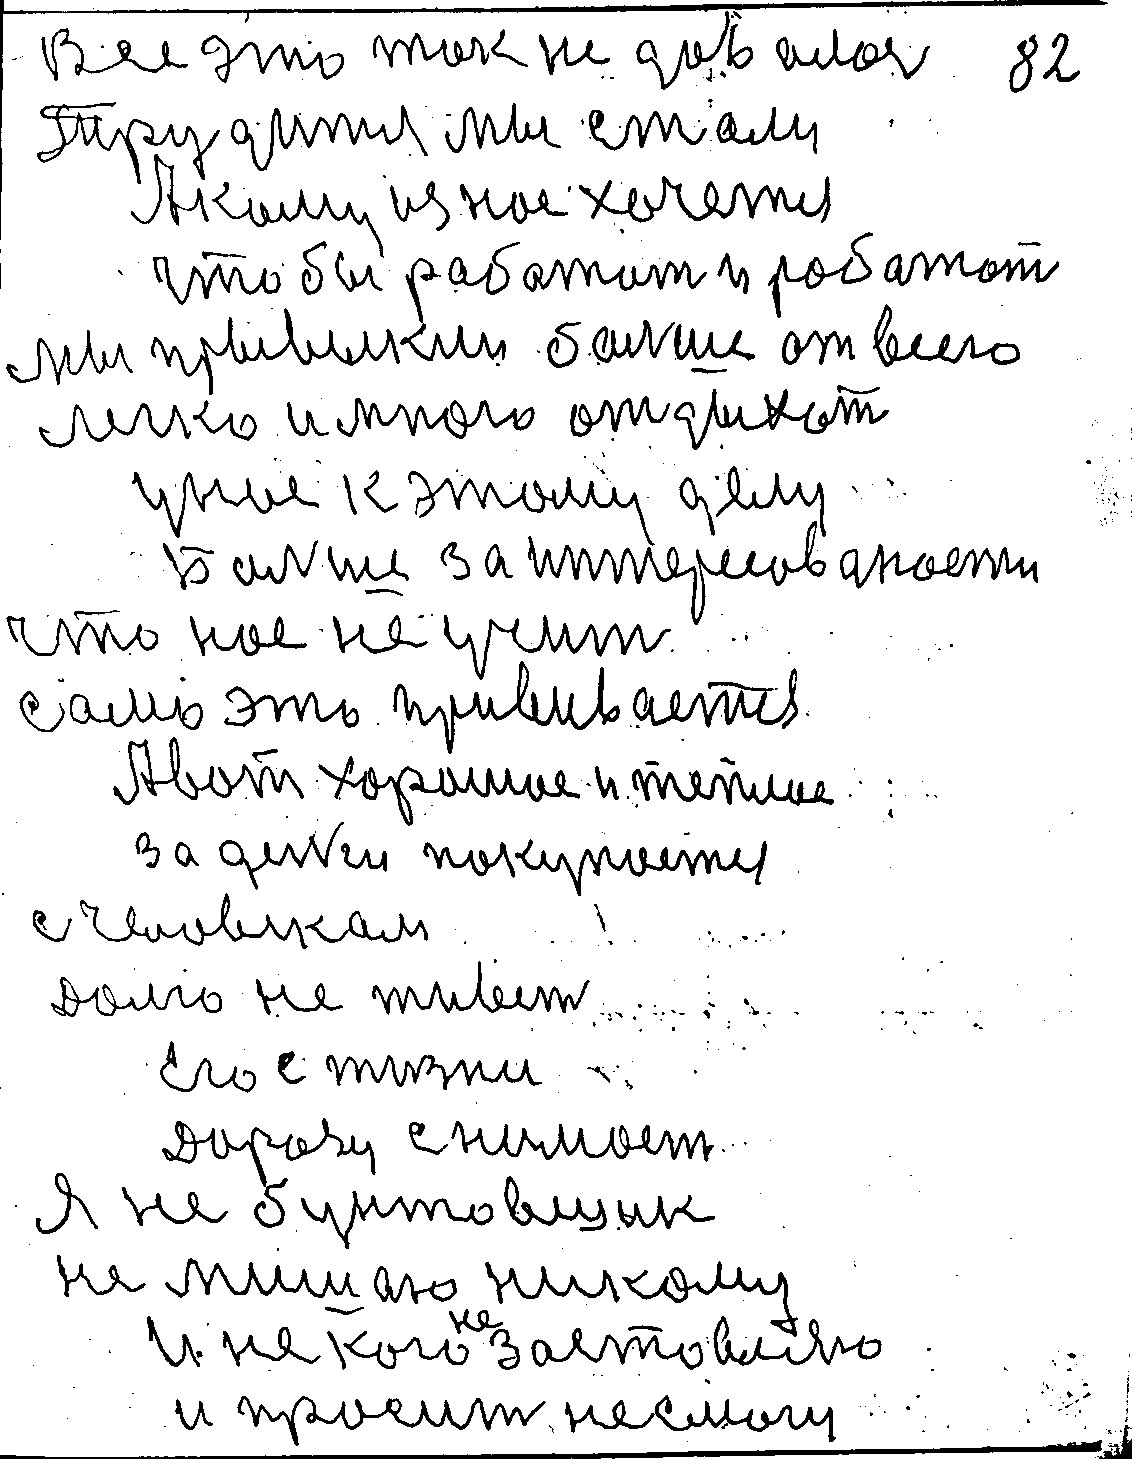 Все это так не давалос 82
Трудится мы стали
А кому из нас хочется
чтобы работат и работат
мы привыкли балше от всего
легко и много отдыхат
у нас к этому делу
Балше заинтересованости
что нас не учит
само это прививается
А вот хорошое и теплое
за денги покупается
с человикам
долго не живет
его с жизни
дорогу снимает
Я не бунтовщик
не мишаю никому
И не кого не заставляю
и просит не смогу